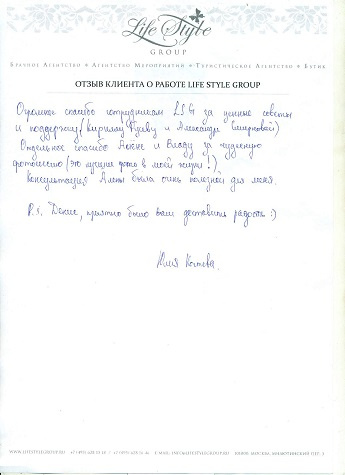 Life Style
GROUP
Брачное Агентство • Агентство Мероприятий • Туристическое Агентство • Бутик
ОТЗЫВ КЛИЕНТА О РАБОТЕ LIFE STYLE GROUP
Огромное спасибо сотрудникам LSG за ценные советы
и поддержку (Кириллу и Александре
Отдельное спасибо и Владу за чудесную
фотосессию (это лучшие фото в моей жизни!)
Консультация Алены была очень полезной для меня.
P.S. Денис, приятно было вам доставить радость :)
Юлия
WWW.LIFESTYLEGROUP.RU